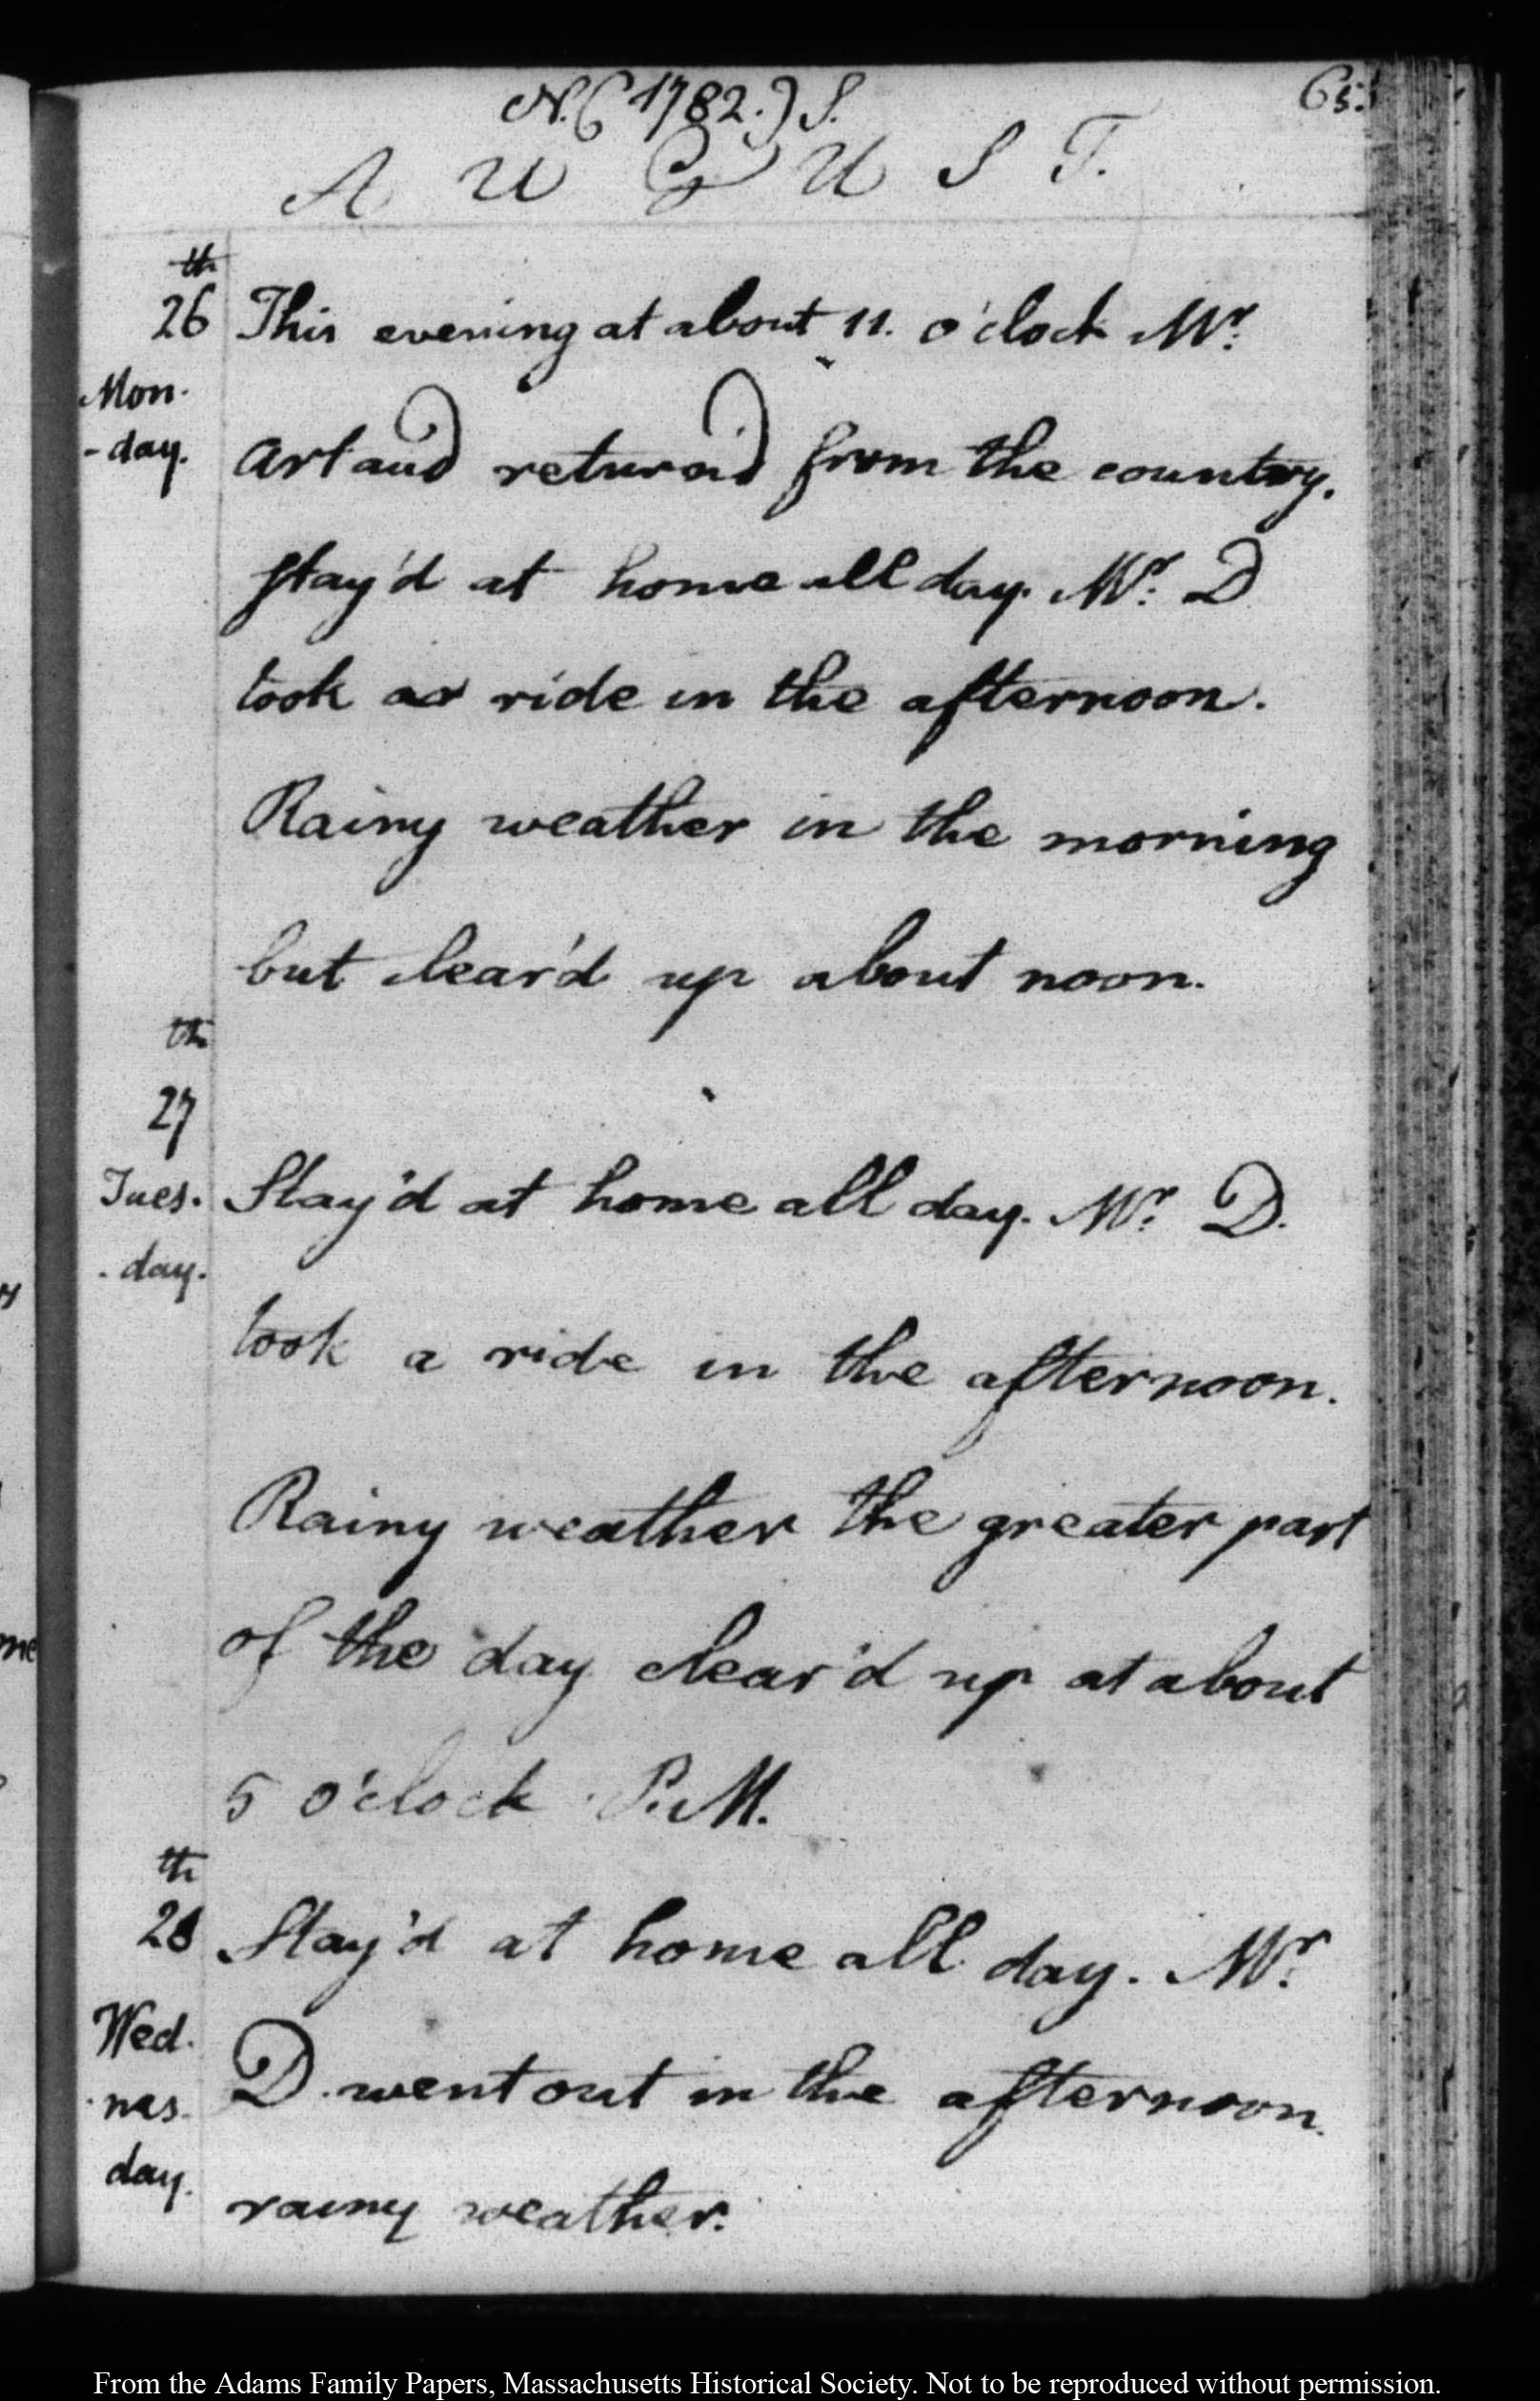 N. (1782.) S. 65.
A U G U S T.
th
26 This evening at about 11. o'clock Mr.
Mon-
-day. Artaud return'd from the country.
stay'd at home all day. Mr. D
took a ride in the afternoon.
Rainy weather in the morning
but clear'd up about noon.
th
27
Tues. Stay'd at home all day. Mr. D.
-day.
took a ride in the afternoon.
Rainy weather the greater part
of the day clear'd up at about
5 o'clock P.M.
th
28 Stay'd at home all day. Mr.
Wed.
-nes- D. went out in the afternoon.
day. rainy weather.
From the Adams Family Papers, Massachusetts Historical Society. Not to be reproduced without permission.